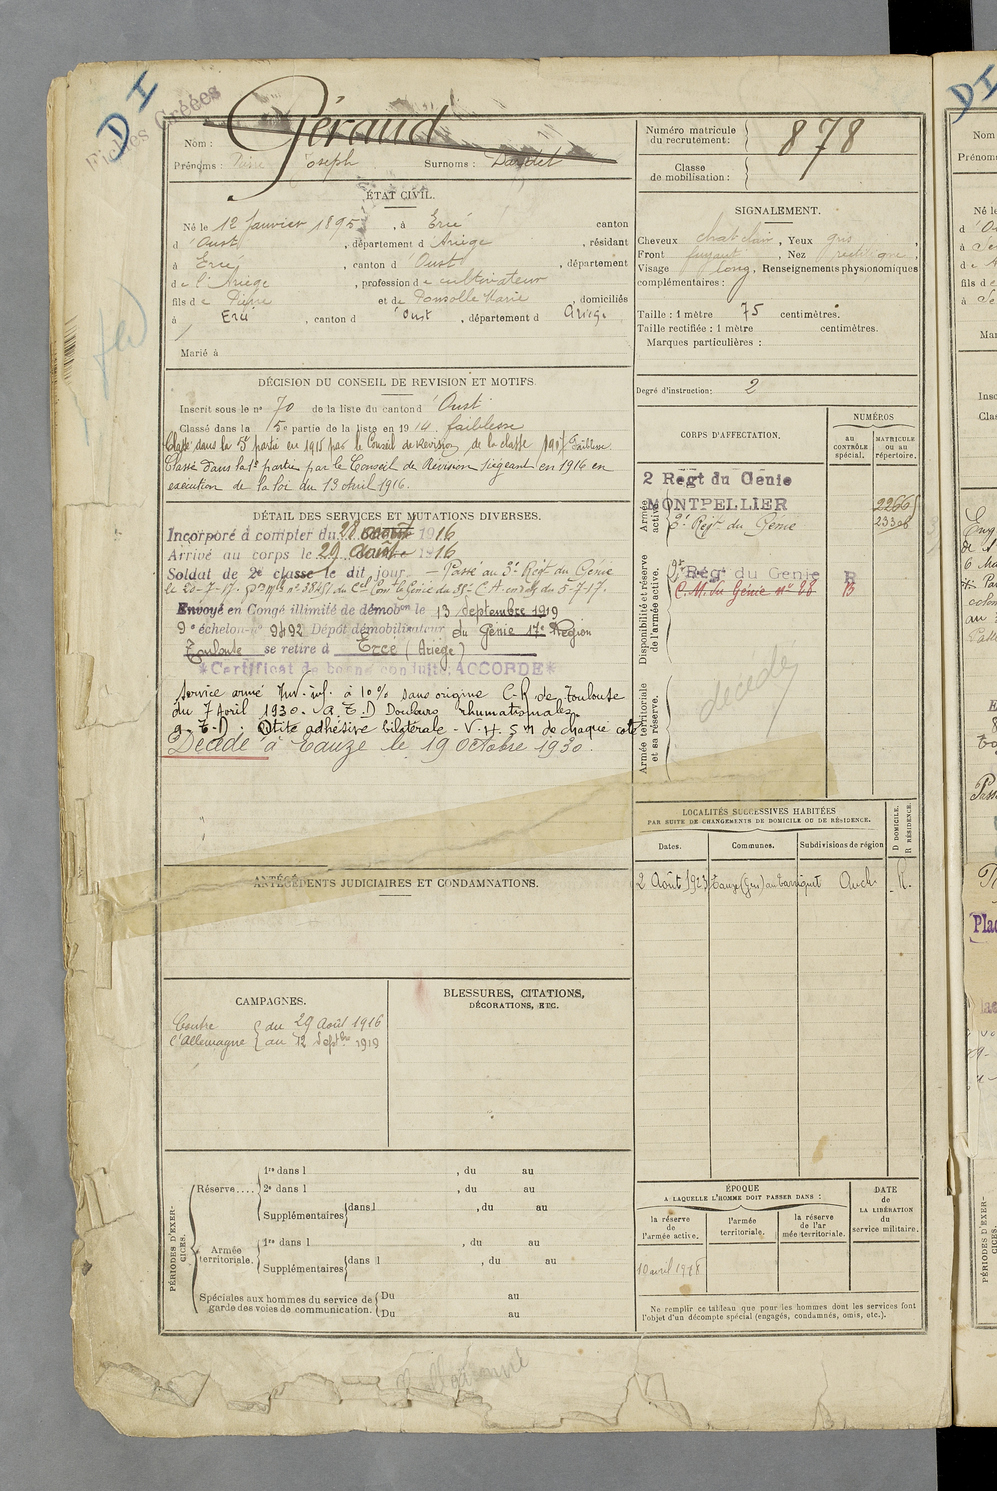 DI
Fiches Créées
Nom : Géraud
Prénoms : Joseph Surnoms : Dardet
Numéro matricule du recrutement : 878
Classe de mobilisation :
ÉTAT CIVIL.
Né le 12 Janvier 1895, à Ercé canton
d'Oust, département d'Ariège, résidant
à Ercé, canton d'Oust, département
de l'Ariège, profession de cultivateur
fils de Pierre et de Ponsolle Marie, domiciliés
à Ercé, canton d'Oust, département d Ariège
Marié à
SIGNALEMENT.
Cheveux chat clair, Yeux gris,
Front fuyant, Nez rectiligne,
Visage long, Renseignements physionomiques
complémentaires :
Taille : 1 mètre 75 centimètres.
Taille rectifiée : 1 mètre centimètres.
Marques particulières :
Degré d'instruction : 2
DÉCISION DU CONSEIL DE REVISION ET MOTIFS.
Inscrit sous le n° 70 de la liste du canton d'Oust
Classé dans la 5e partie de la liste en 1914. faiblesse
Classé dans la 5e partie en 1915 par le Conseil de Revision de la classe 1917 Faiblesse.
Classé dans la 1e partie par le Conseil de Revision siégeant en 1916 en
exécution de la loi du 13 Avril 1916.
DÉTAIL DES SERVICES ET MUTATIONS DIVERSES.
Incorporé à compter du 28 août 1916
Arrivé au corps le 29 Août 1916
Soldat de 2e classe le dit jour — Passé au 3e Régt du Génie
le 20-7-17.
Envoyé en Congé illimité de démobon le 13 septembre 1919
9e échelon n° 9492 Dépôt démobilisateur du Génie 17e Région
Toulouse se retire à Ercé (Ariège)
*Certificat de bonne conduite ACCORDÉ*
Service armé Inv. inf. à 10% sans origine C.R de Toulouse
du 7 Avril 1930. A.E.D Douleurs rhumatismales.
Otite adhésive bilatérale - V.H. 5 m de chaque coté
Décédé à Eauze le 19 Octobre 1930.
CORPS D'AFFECTATION.
NUMÉROS
au CONTRÔLE spécial.
MATRICULE ou au répertoire.
Armée active.
2 Régt du Génie
MONTPELLIER
2266
2e Régt du Génie 23308
Disponibilité et réserve de l'armée active.
Régt du Génie R
C.M. du Génie n° 68 B
Armée territoriale et sa réserve.
décédé
LOCALITÉS SUCCESSIVES HABITÉES
PAR SUITE DE CHANGEMENTS DE DOMICILE OU DE RÉSIDENCE.
Dates. Communes. Subdivisions de région D DOMICILE. R RÉSIDENCE.
2 Août 1923 Eauze (Gers) au Barriquet Auch R.
ANTÉCÉDENTS JUDICIAIRES ET CONDAMNATIONS.
CAMPAGNES.
Contre l'Allemagne { du 29 Août 1916
au 12 Septbre 1919
BLESSURES, CITATIONS,
DÉCORATIONS, ETC.
PÉRIODES D'EXERCICES.
Réserve.... 1re dans l , du au
2e dans l , du au
Supplémentaires dans l , du au
Armée territoriale. 1re dans l , du au
Supplémentaires dans l , du au
Spéciales aux hommes du service de garde des voies de communication. Du au
Du au
ÉPOQUE
A LAQUELLE L'HOMME DOIT PASSER DANS :
la réserve de l'armée active.
l'armée territoriale.
la réserve de l'armée territoriale.
DATE de LA LIBÉRATION du service militaire.
10 avril 1918
Ne remplir ce tableau que pour les hommes dont les services font
l'objet d'un décompte spécial (engagés, condamnés, omis, etc.).